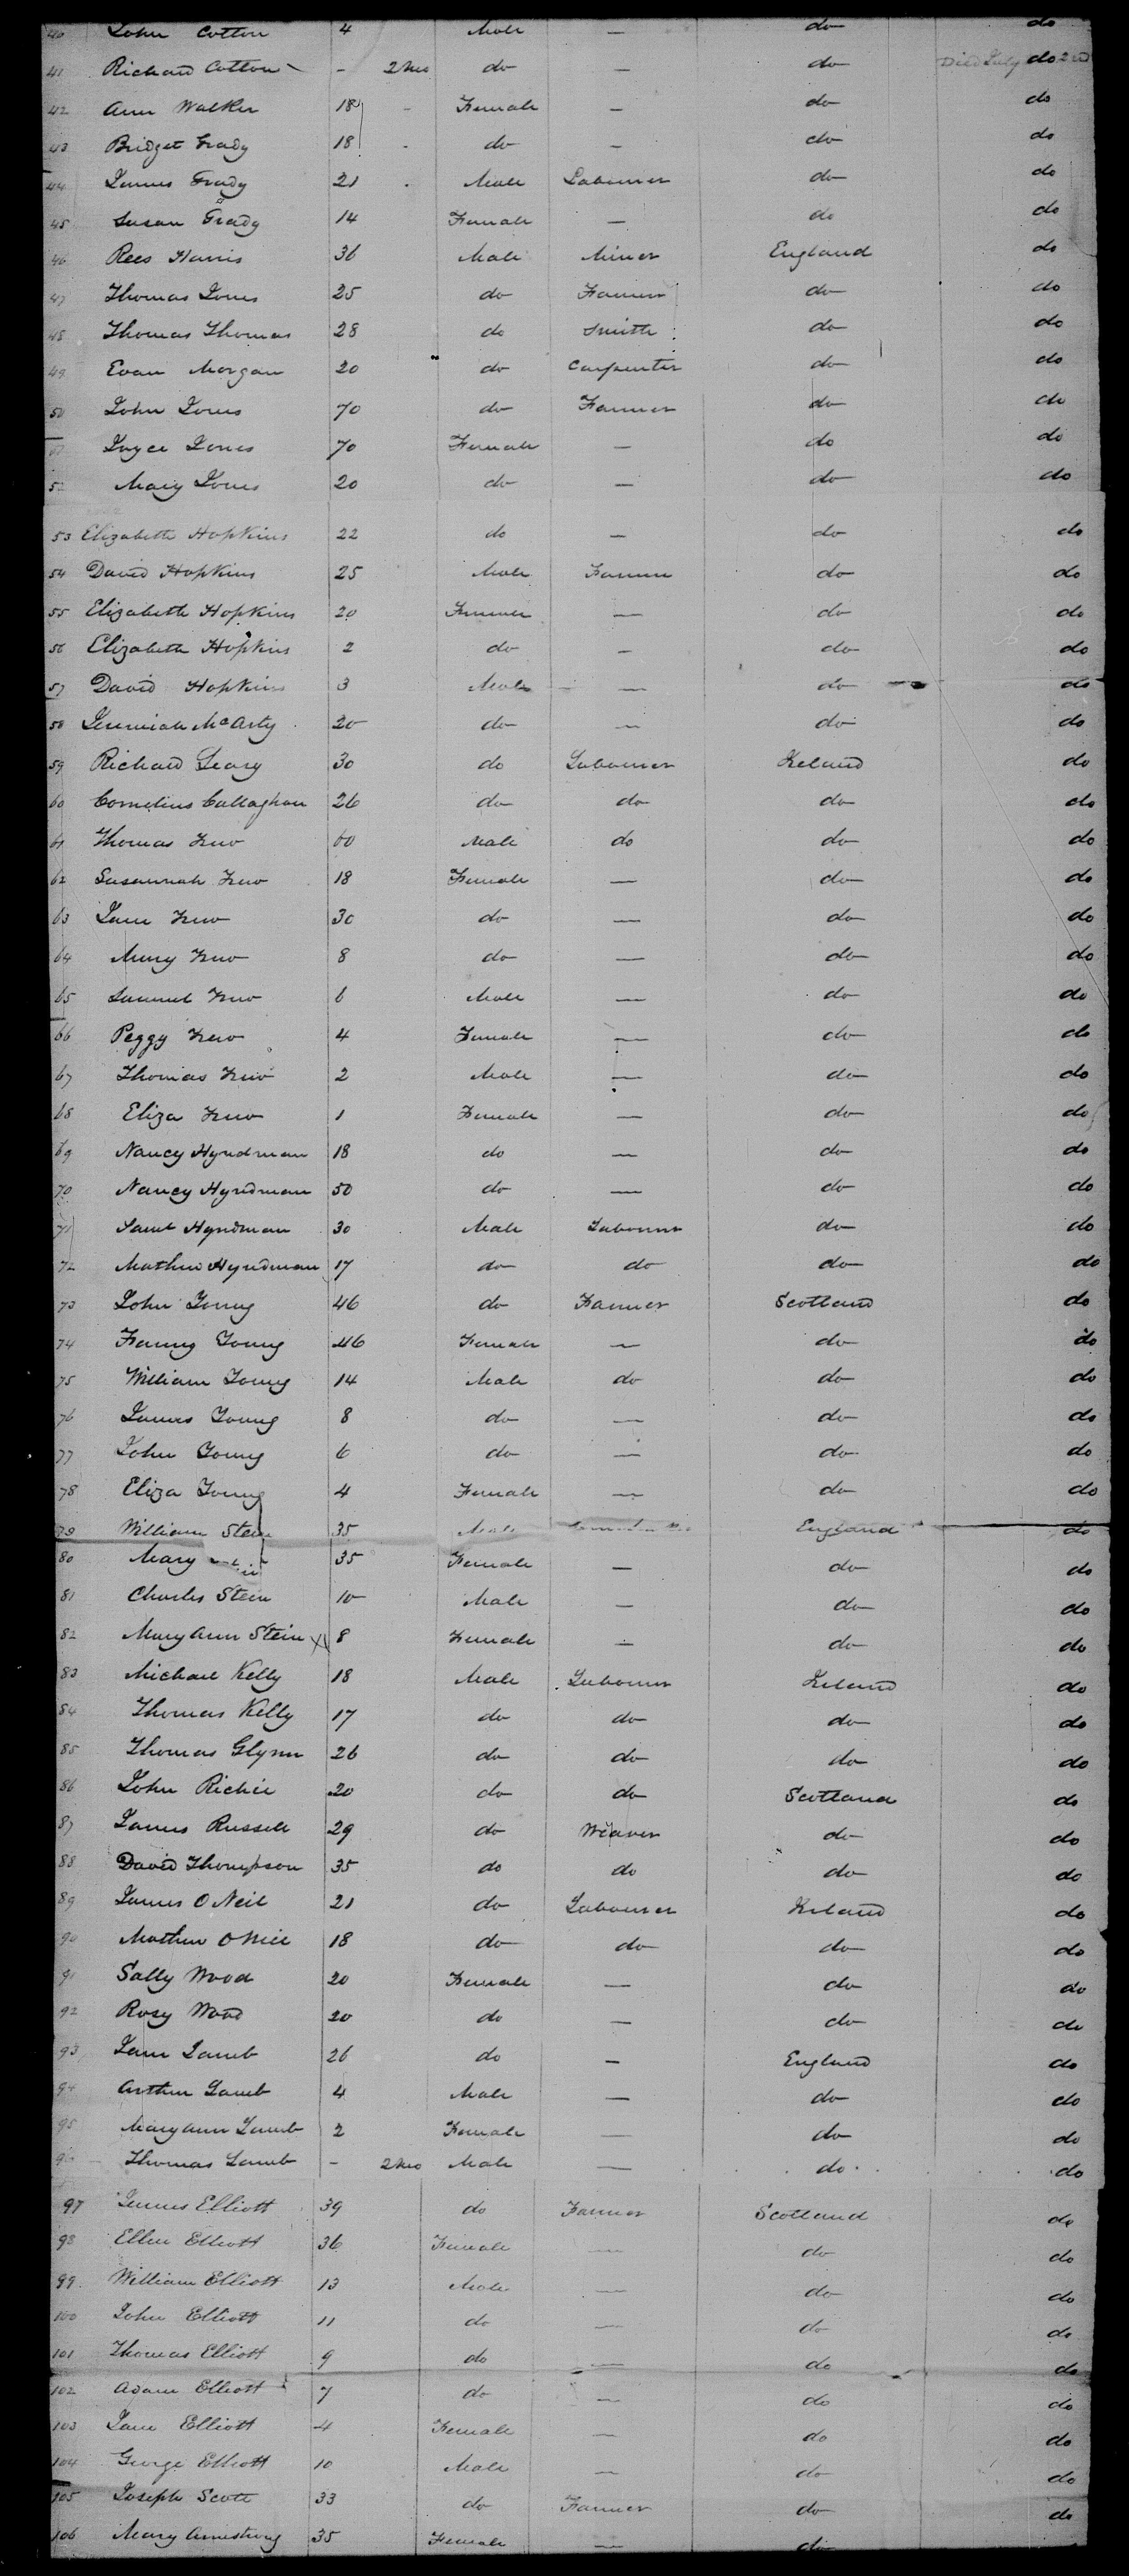 40 John Cotton 4 Male — do do
41 Richard Cotton - 2 Mo do — do Died July do 2nd
42 Ann Walker 18 - Female — do do
43 Bridget Grady 18 - do — do do
44 James Grady 21 Male Labourer do do
45 Susan Grady 14 Female — do do
46 Rees Harris 36 Male Miner England do
47 Thomas Jones 25 do Farmer do do
48 Thomas Thomas 28 do Smith do do
49 Evan Morgan 20 do Carpenter do do
50 John Jones 70 do Farmer do do
51 Joyce Jones 70 Female — do do
52 Mary Jones 20 do — do do
53 Elizabeth Hopkins 22 do — do do
54 David Hopkins 25 Male Farmer do do
55 Elizabeth Hopkins 20 Female — do do
56 Elizabeth Hopkins 2 do — do do
57 David Hopkins 3 Male — do do
58 Jeremiah McArty 20 do — do do
59 Richard Leary 30 do Labourer Ireland do
60 Cornelius Callaghan 26 do do do do
61 Thomas 60 Male do do do
62 Susannah 18 Female — do do
63 Jane 30 do — do do
64 Mary 8 do — do do
65 Samuel 6 Male — do do
66 Peggy 4 Female — do do
67 Thomas 2 Male — do do
68 Eliza 1 Female — do do
69 Nancy Hyndman 18 do — do do
70 Nancy Hyndman 50 do — do do
71 Saml Hyndman 30 Male Labourer do do
72 Mathew Hyndman 17 do do do do
73 John Young 46 do Farmer Scotland do
74 Fanny Young 46 Female — do do
75 William Young 14 Male do do do
76 James Young 8 do — do do
77 John Young 6 do — do do
78 Eliza Young 4 Female — do do
79 William Stein 35 Male England do
80 Mary 35 Female — do do
81 Charles Stein 10 Male — do do
82 Mary Ann Stein 8 Female — do do
83 Michael Kelly 18 Male Labourer Ireland do
84 Thomas Kelly 17 do do do do
85 Thomas Glynn 26 do do do do
86 John Richie 20 do do Scotland do
87 James Russell 29 do Weaver do do
88 David Thompson 35 do do do do
89 James O Neil 21 do Labourer Ireland do
90 Mathew O Neil 18 do do do do
91 Sally Wood 20 Female — do do
92 Rosy Wood 20 do — do do
93 Jane Lamb 26 do — England do
94 Arthur Lamb 4 Male — do do
95 Mary Ann Lamb 2 Female — do do
96 Thomas Lamb - 2 Mo Male — do do
97 James Elliott 39 do Farmer Scotland do
98 Ellen Elliott 36 Female — do do
99 William Elliott 13 Male — do do
100 John Elliott 11 do — do do
101 Thomas Elliott 9 do — do do
102 Adam Elliott 7 do — do do
103 Jane Elliott 4 Female — do do
104 George Elliott 10 Male — do do
105 Joseph Scott 33 do Farmer do do
106 Mary Armstrong 35 Female — do